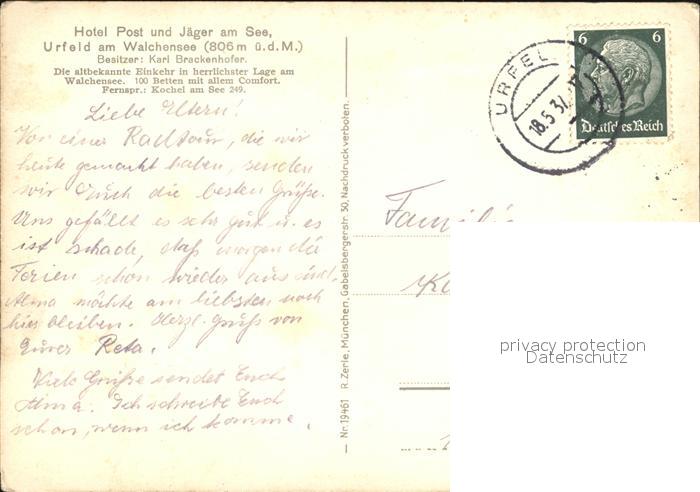 Hotel Post und Jäger am See,
Urfeld am Walchensee (806 m ü.d.M.)
Besitzer: Karl Brackenhofer.
Die altbekannte Einkehr in herrlichster Lage am
Walchensee. 100 Betten mit allem Comfort.
Fernspr.: Kochel am See 249.
Liebe Eltern!
Von einer Radtour, die wir
heute gemacht haben, senden
wir Euch die besten Grüße.
Uns gefällt es sehr gut u. es
ist schade, daß morgen die
Ferien schon wieder aus sind.
Alma möchte am liebsten noch
hier bleiben. Herzl. Gruß von
Eurer Reta.
Viele Grüße sendet Euch
Alma. Ich schreibe Euch
schon, wenn ich komme.
Nr. 19461 R. Zerle, München, Gabelsbergerstr. 50, Nachdruck verboten.
URFEL
18.5.37
6 6
Deutsches Reich
Familie
privacy protection
Datenschutz